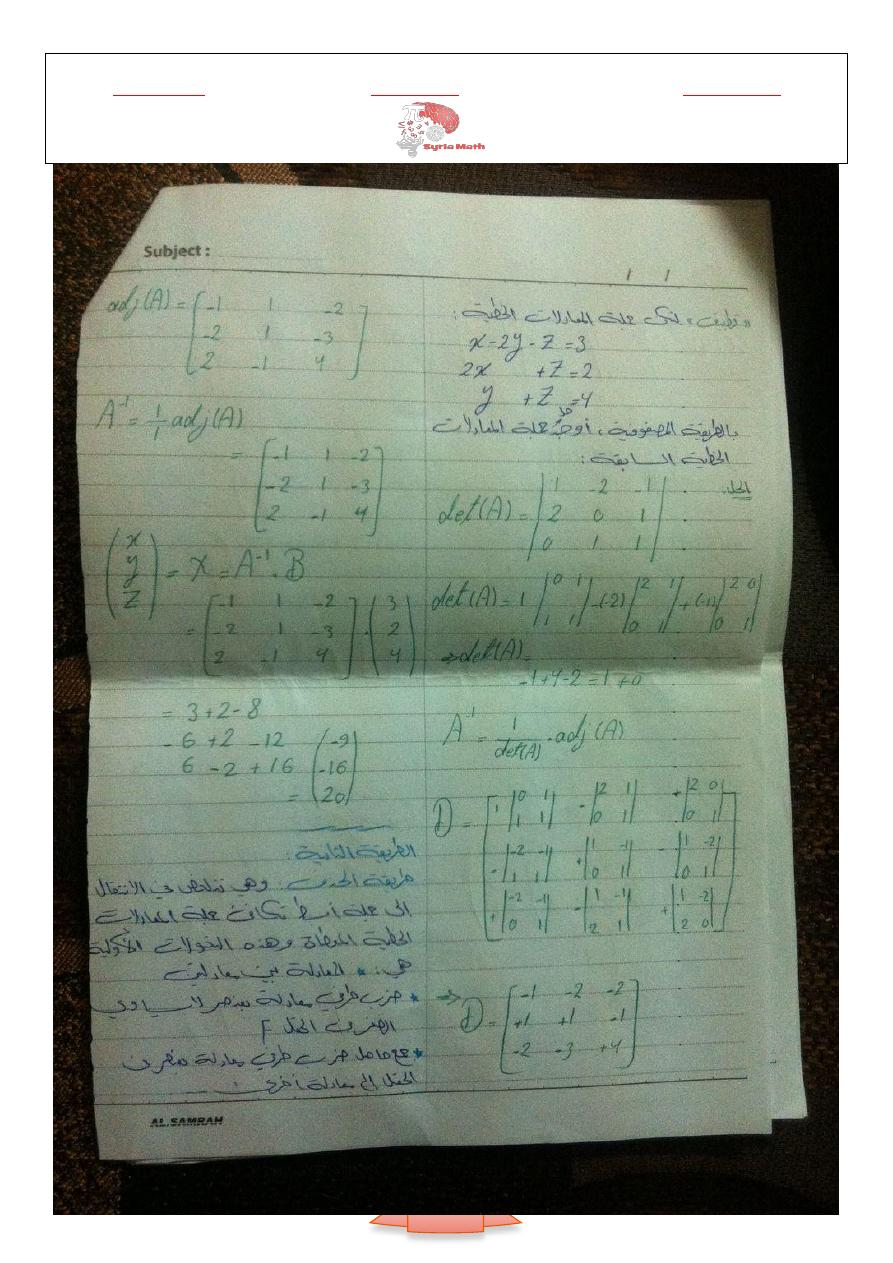 Syria Math
Subject :
/ /
« تطبيق » لتكن جملة المعادلات الخطية :
x - 2y - z = 3
2x + z = 2
y + z = 4
بالطريقة المصفوفية ، أوجد حل جملة المعادلات
الخطية السابقة :
الحل
det(A) = | 1 -2 -1 |
| 2 0 1 |
| 0 1 1 |
det(A) = 1 |0 1; 1 1| - (-2) |2 1; 0 1| + (-1) |2 0; 0 1|
⇒ det(A) =
-1 + 4 - 2 = 1 ≠ 0
A⁻¹ = 1/det(A) . adj(A)
D = [ + |0 1; 1 1| - |2 1; 0 1| + |2 0; 0 1|
- |-2 -1; 1 1| + |1 -1; 0 1| - |1 -2; 0 1|
+ |-2 -1; 0 1| - |1 -1; 2 1| + |1 -2; 2 0| ]
⇒ D = [ -1 -2 -2
+1 +1 -1
-2 -3 +4 ]
adj(A) = [ -1 1 -2
-2 1 -3
2 -1 4 ]
A⁻¹ = 1/1 adj(A)
= [ -1 1 -2
-2 1 -3
2 -1 4 ]
(x y z) = X = A⁻¹ . B
= [ -1 1 -2
-2 1 -3
2 -1 4 ] . ( 3
2
4 )
= 3 + 2 - 8
- 6 + 2 - 12
6 - 2 + 16
= ( -9
-16
20 )
الطريقة الثانية :
طريقة الحذف : وهي تتلخص في الانتقال
الى جملة أبسط تكافئ جملة المعادلات
الخطية المعطاة وهذه التحولات الأولية
هي : * المبادلة بين معادلتين
* ضرب طرفي معادلة بعنصر لا يساوي
الصفر من الحقل F
* جمع حاصل ضرب طرفي معادلة بعنصر من
الحقل إلى معادلة أخرى
AL.SAMRAH